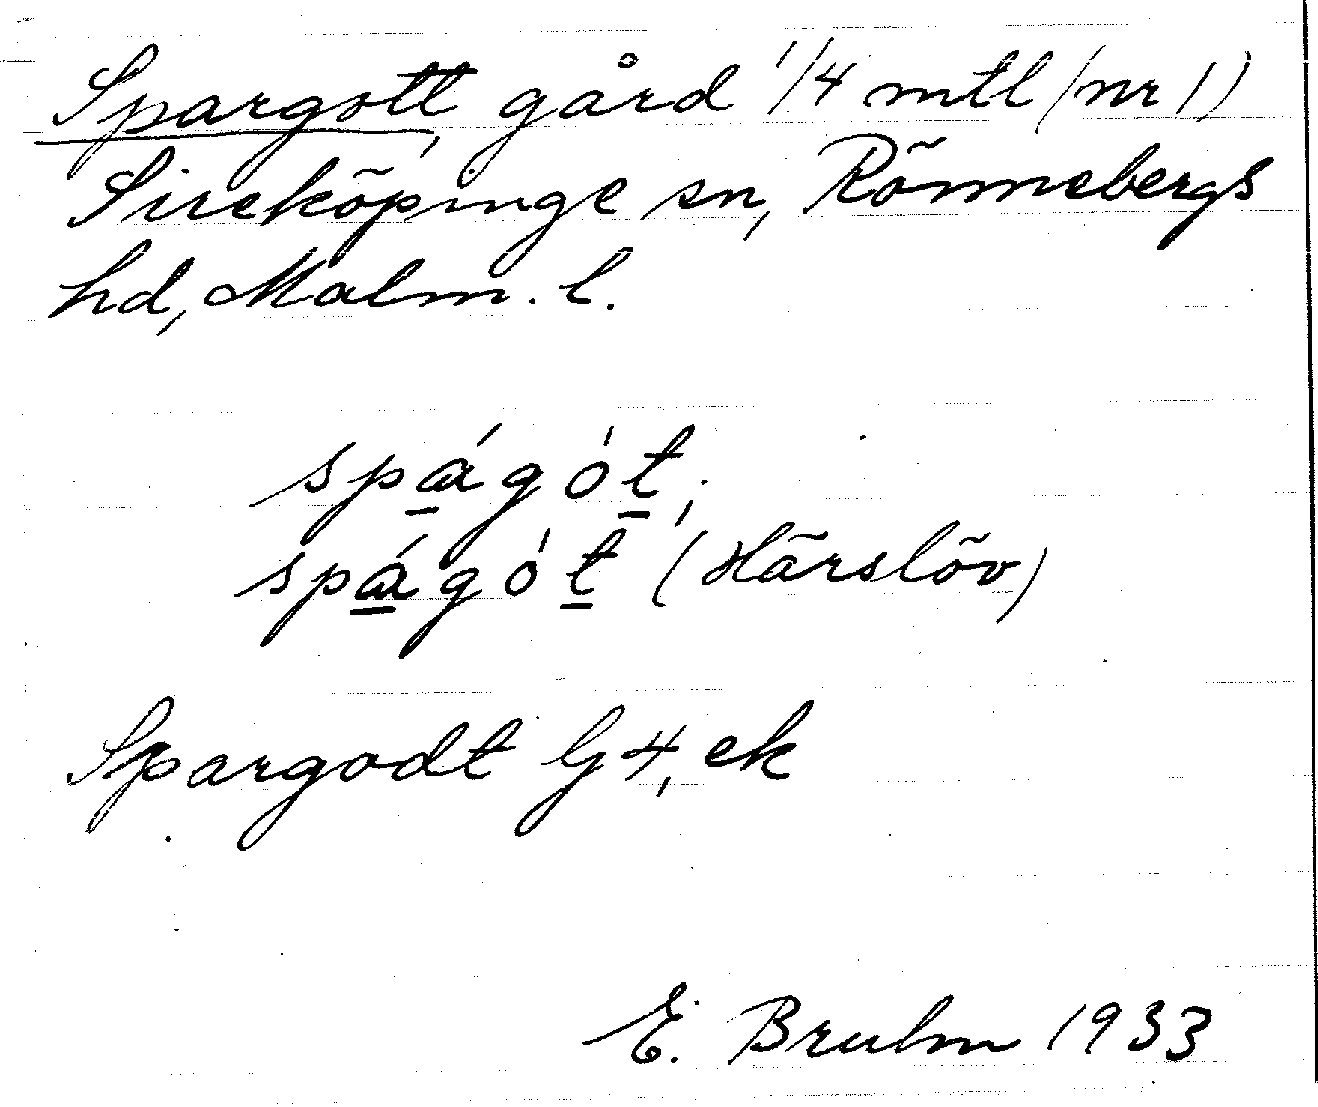 Spargott, gård 1/4 mtl (nr 1)
Sireköpinge sn, Rönnebergs
hd, Malm. l.
spágót;
spágót (Härslöv)
Spargodt G4, ek
E. Bruhn 1933